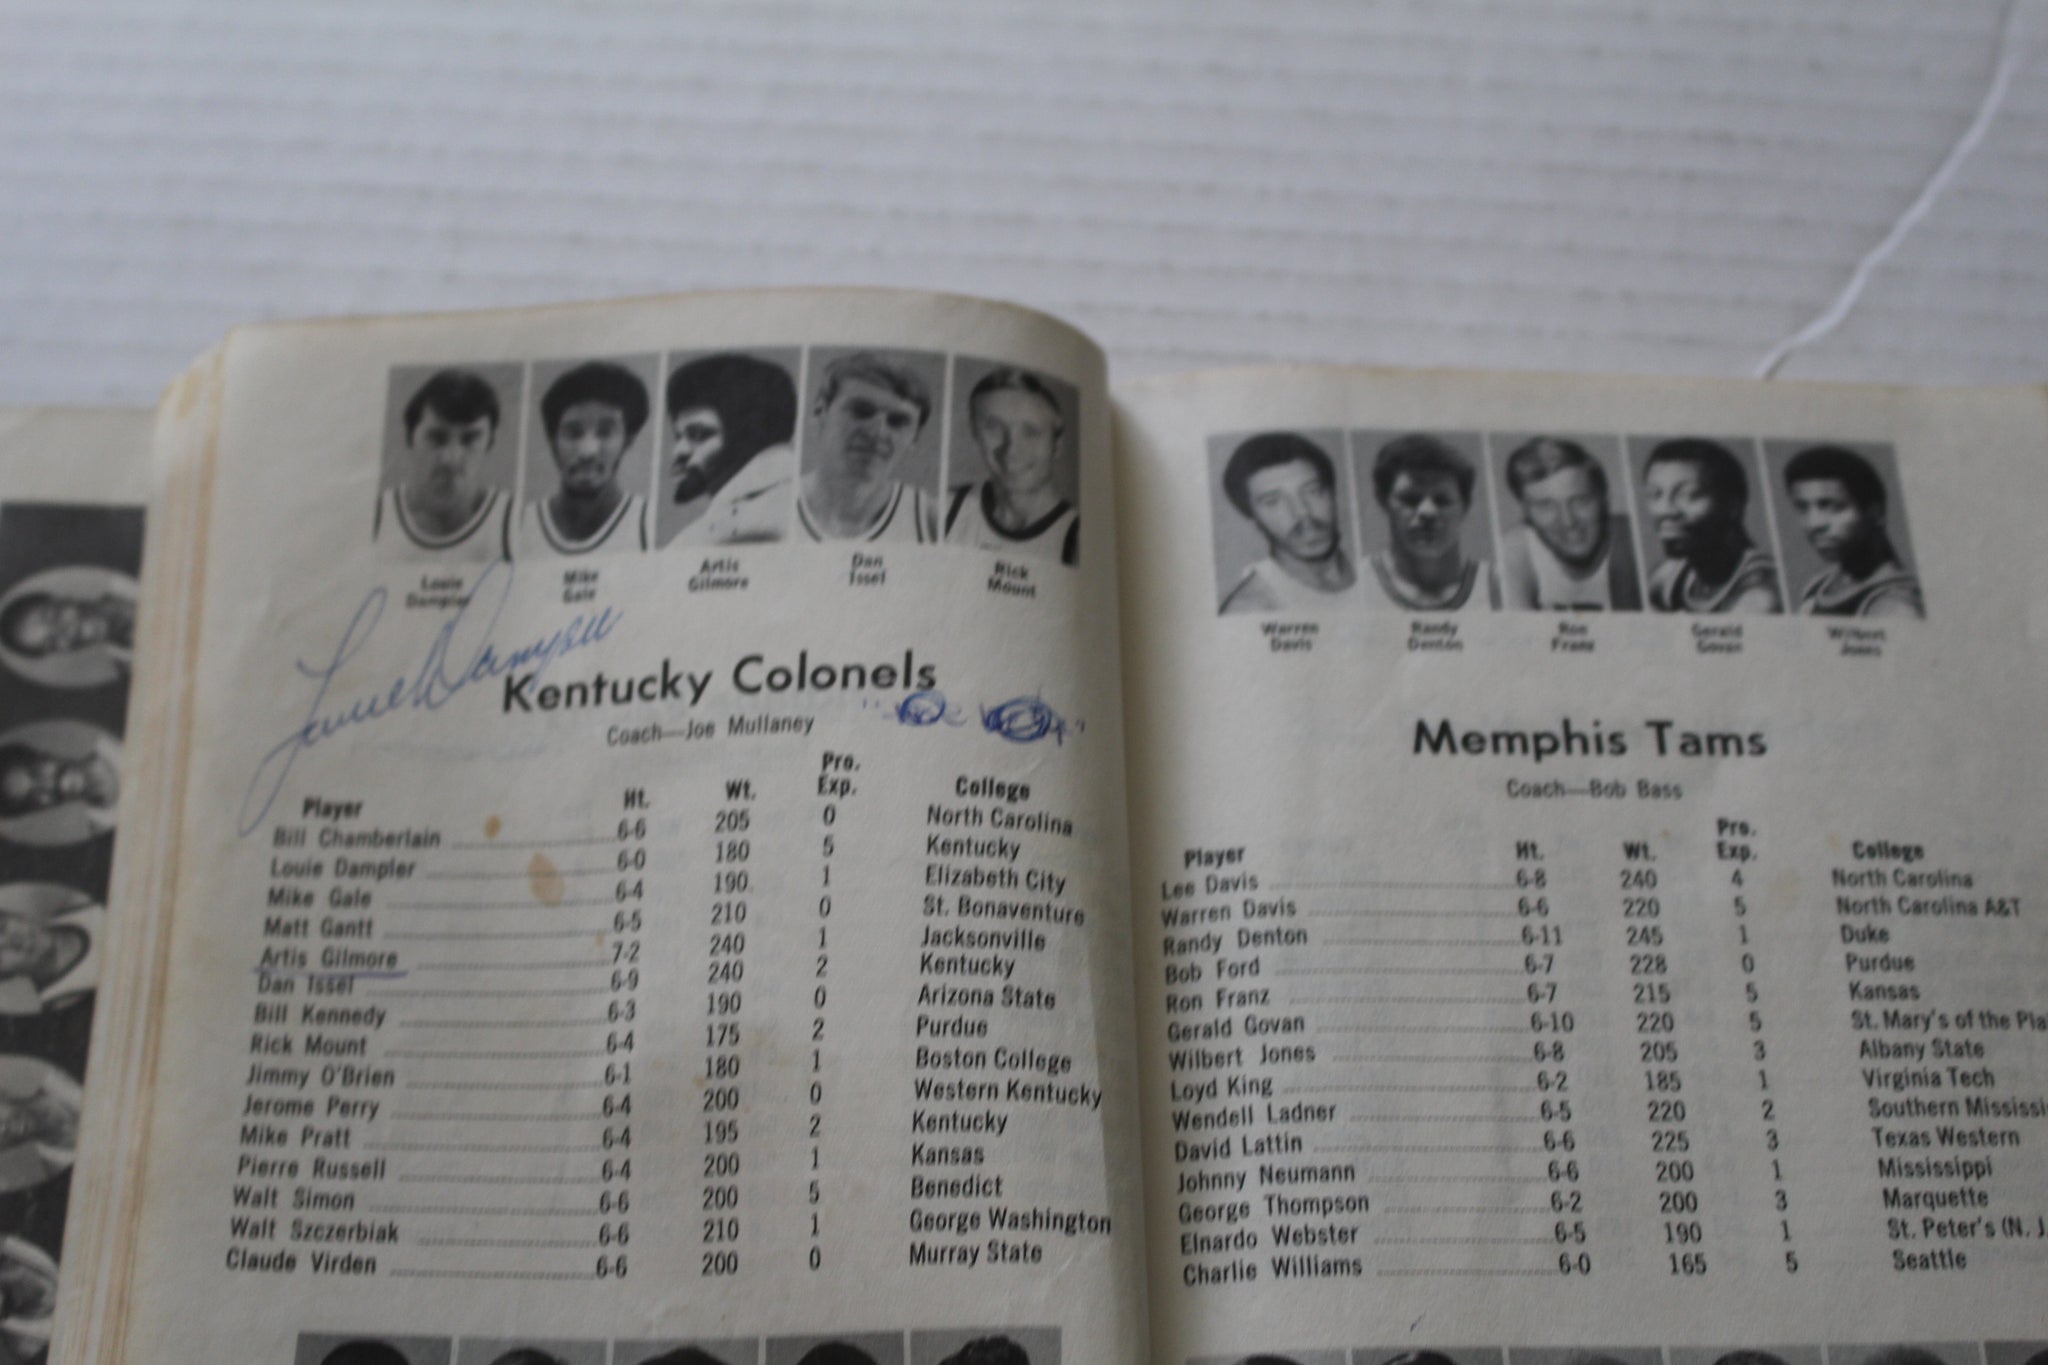 Louie Dampier
Mike Gale
Artis Gilmore
Dan Issel
Rick Mount
Louie Dampier
Kentucky Colonels
Coach—Joe Mullaney
Player Ht. Wt. Pro. Exp. College
Bill Chamberlain 6-6 205 0 North Carolina
Louie Dampler 6-0 180 5 Kentucky
Mike Gale 6-4 190 1 Elizabeth City
Matt Gantt 6-5 210 0 St. Bonaventure
Artis Gilmore 7-2 240 1 Jacksonville
Dan Issel 6-9 240 2 Kentucky
Bill Kennedy 6-3 190 0 Arizona State
Rick Mount 6-4 175 2 Purdue
Jimmy O'Brien 6-1 180 1 Boston College
Jerome Perry 6-4 200 0 Western Kentucky
Mike Pratt 6-4 195 2 Kentucky
Pierre Russell 6-4 200 1 Kansas
Walt Simon 6-6 200 5 Benedict
Walt Szczerbiak 6-6 210 1 George Washington
Claude Virden 6-6 200 0 Murray State
Warren Davis
Randy Denton
Ron Franz
Gerald Govan
Wilbert Jones
Memphis Tams
Coach—Bob Bass
Player Ht. Wt. Pro. Exp. College
Lee Davis 6-8 240 4 North Carolina
Warren Davis 6-6 220 5 North Carolina A&T
Randy Denton 6-11 245 1 Duke
Bob Ford 6-7 228 0 Purdue
Ron Franz 6-7 215 5 Kansas
Gerald Govan 6-10 220 5 St. Mary's of the Pla
Wilbert Jones 6-8 205 3 Albany State
Loyd King 6-2 185 1 Virginia Tech
Wendell Ladner 6-5 220 2 Southern Mississi
David Lattin 6-6 225 3 Texas Western
Johnny Neumann 6-6 200 1 Mississippi
George Thompson 6-2 200 3 Marquette
Elnardo Webster 6-5 190 1 St. Peter's (N. J.
Charlie Williams 6-0 165 5 Seattle